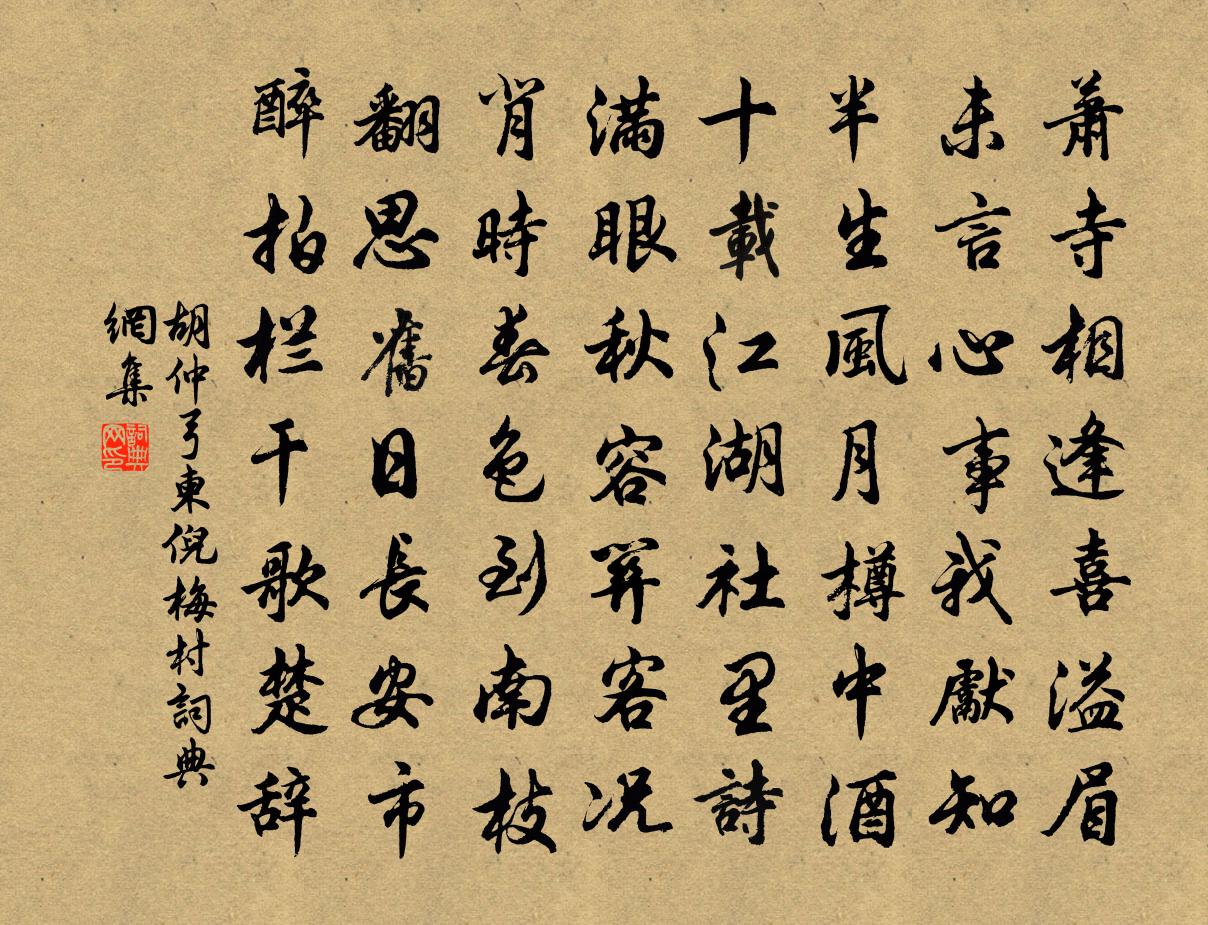 蕭寺相逢喜溢眉
未言心事我獻知
半生風月樽中酒
十載江湖社里詩
滿眼秋容羿客况
肖時春色到南枝
翻思舊日長安市
醉拍栏干歌楚辞
胡仲弓東倪梅村詞典
網集
詞典网印